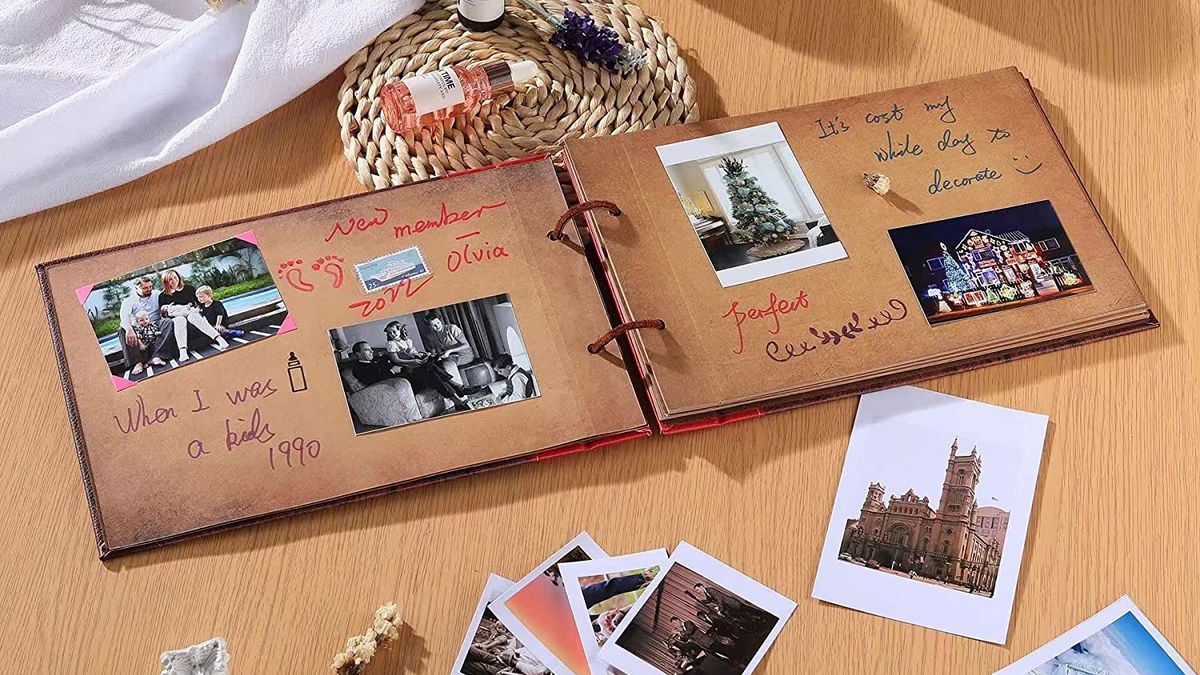 TIME
New member
Olvia
25
2022
When I was
a kids
1990
It's cost my
while day to
decorate :)
perfect